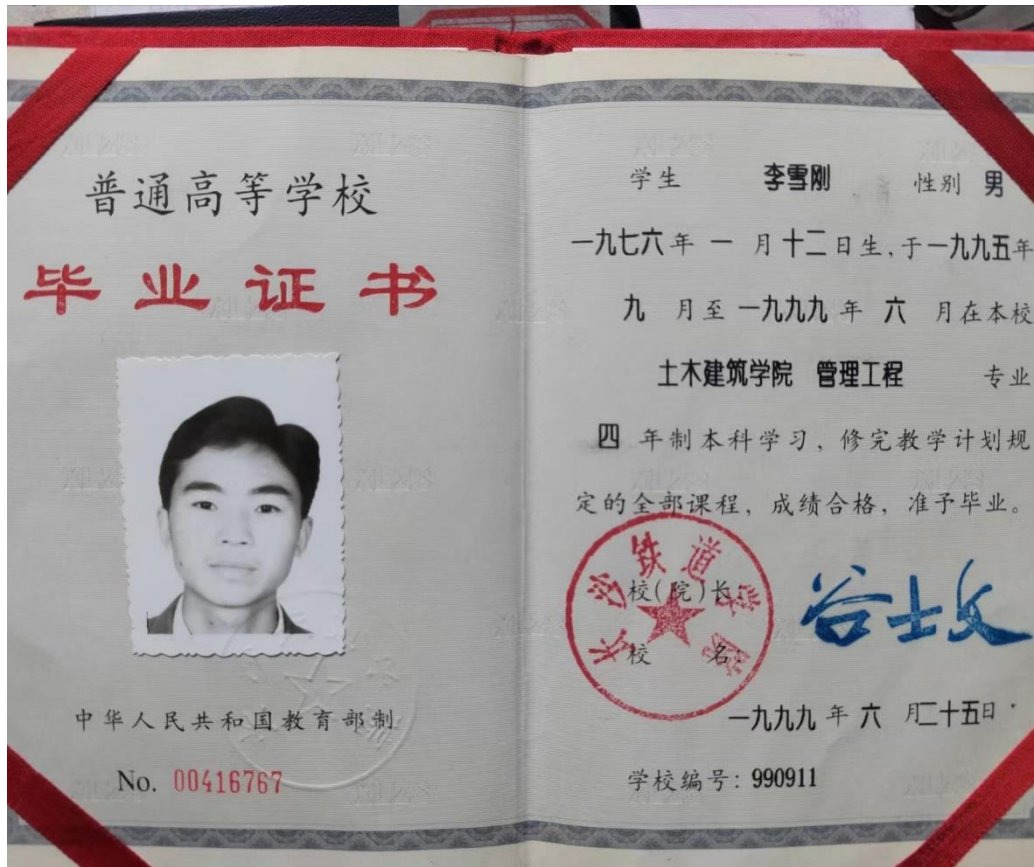 普通高等学校
毕业证书
中华人民共和国教育部制
No. 00416767
学生 李雪刚 性别 男
一九七六年 一 月十二日生,于一九九五年
九 月至 一九九九 年 六 月在本校
土木建筑学院 管理工程 专业
四 年制本科学习，修完教学计划规
定的全部课程，成绩合格，准予毕业。
长沙铁道学院
校(院)长: 谷士文
校 名:
一九九九 年 六 月二十五日
学校编号: 990911